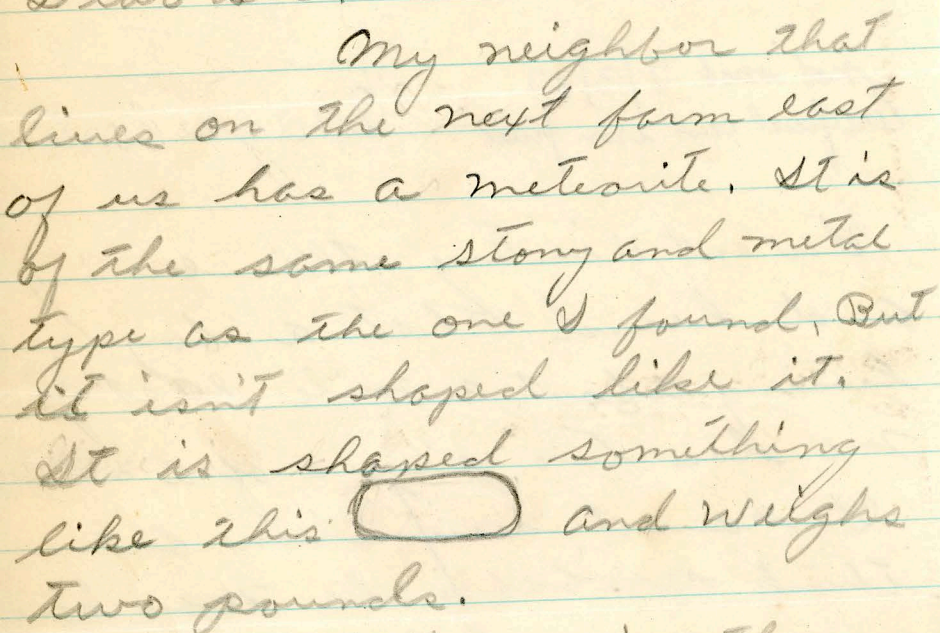 My neighbor that
lives on the next farm east
of us has a meteorite. It is
of the same stony and metal
type as the one I found. But
it isn't shaped like it.
It is shaped something
like this and weighs
two pounds.